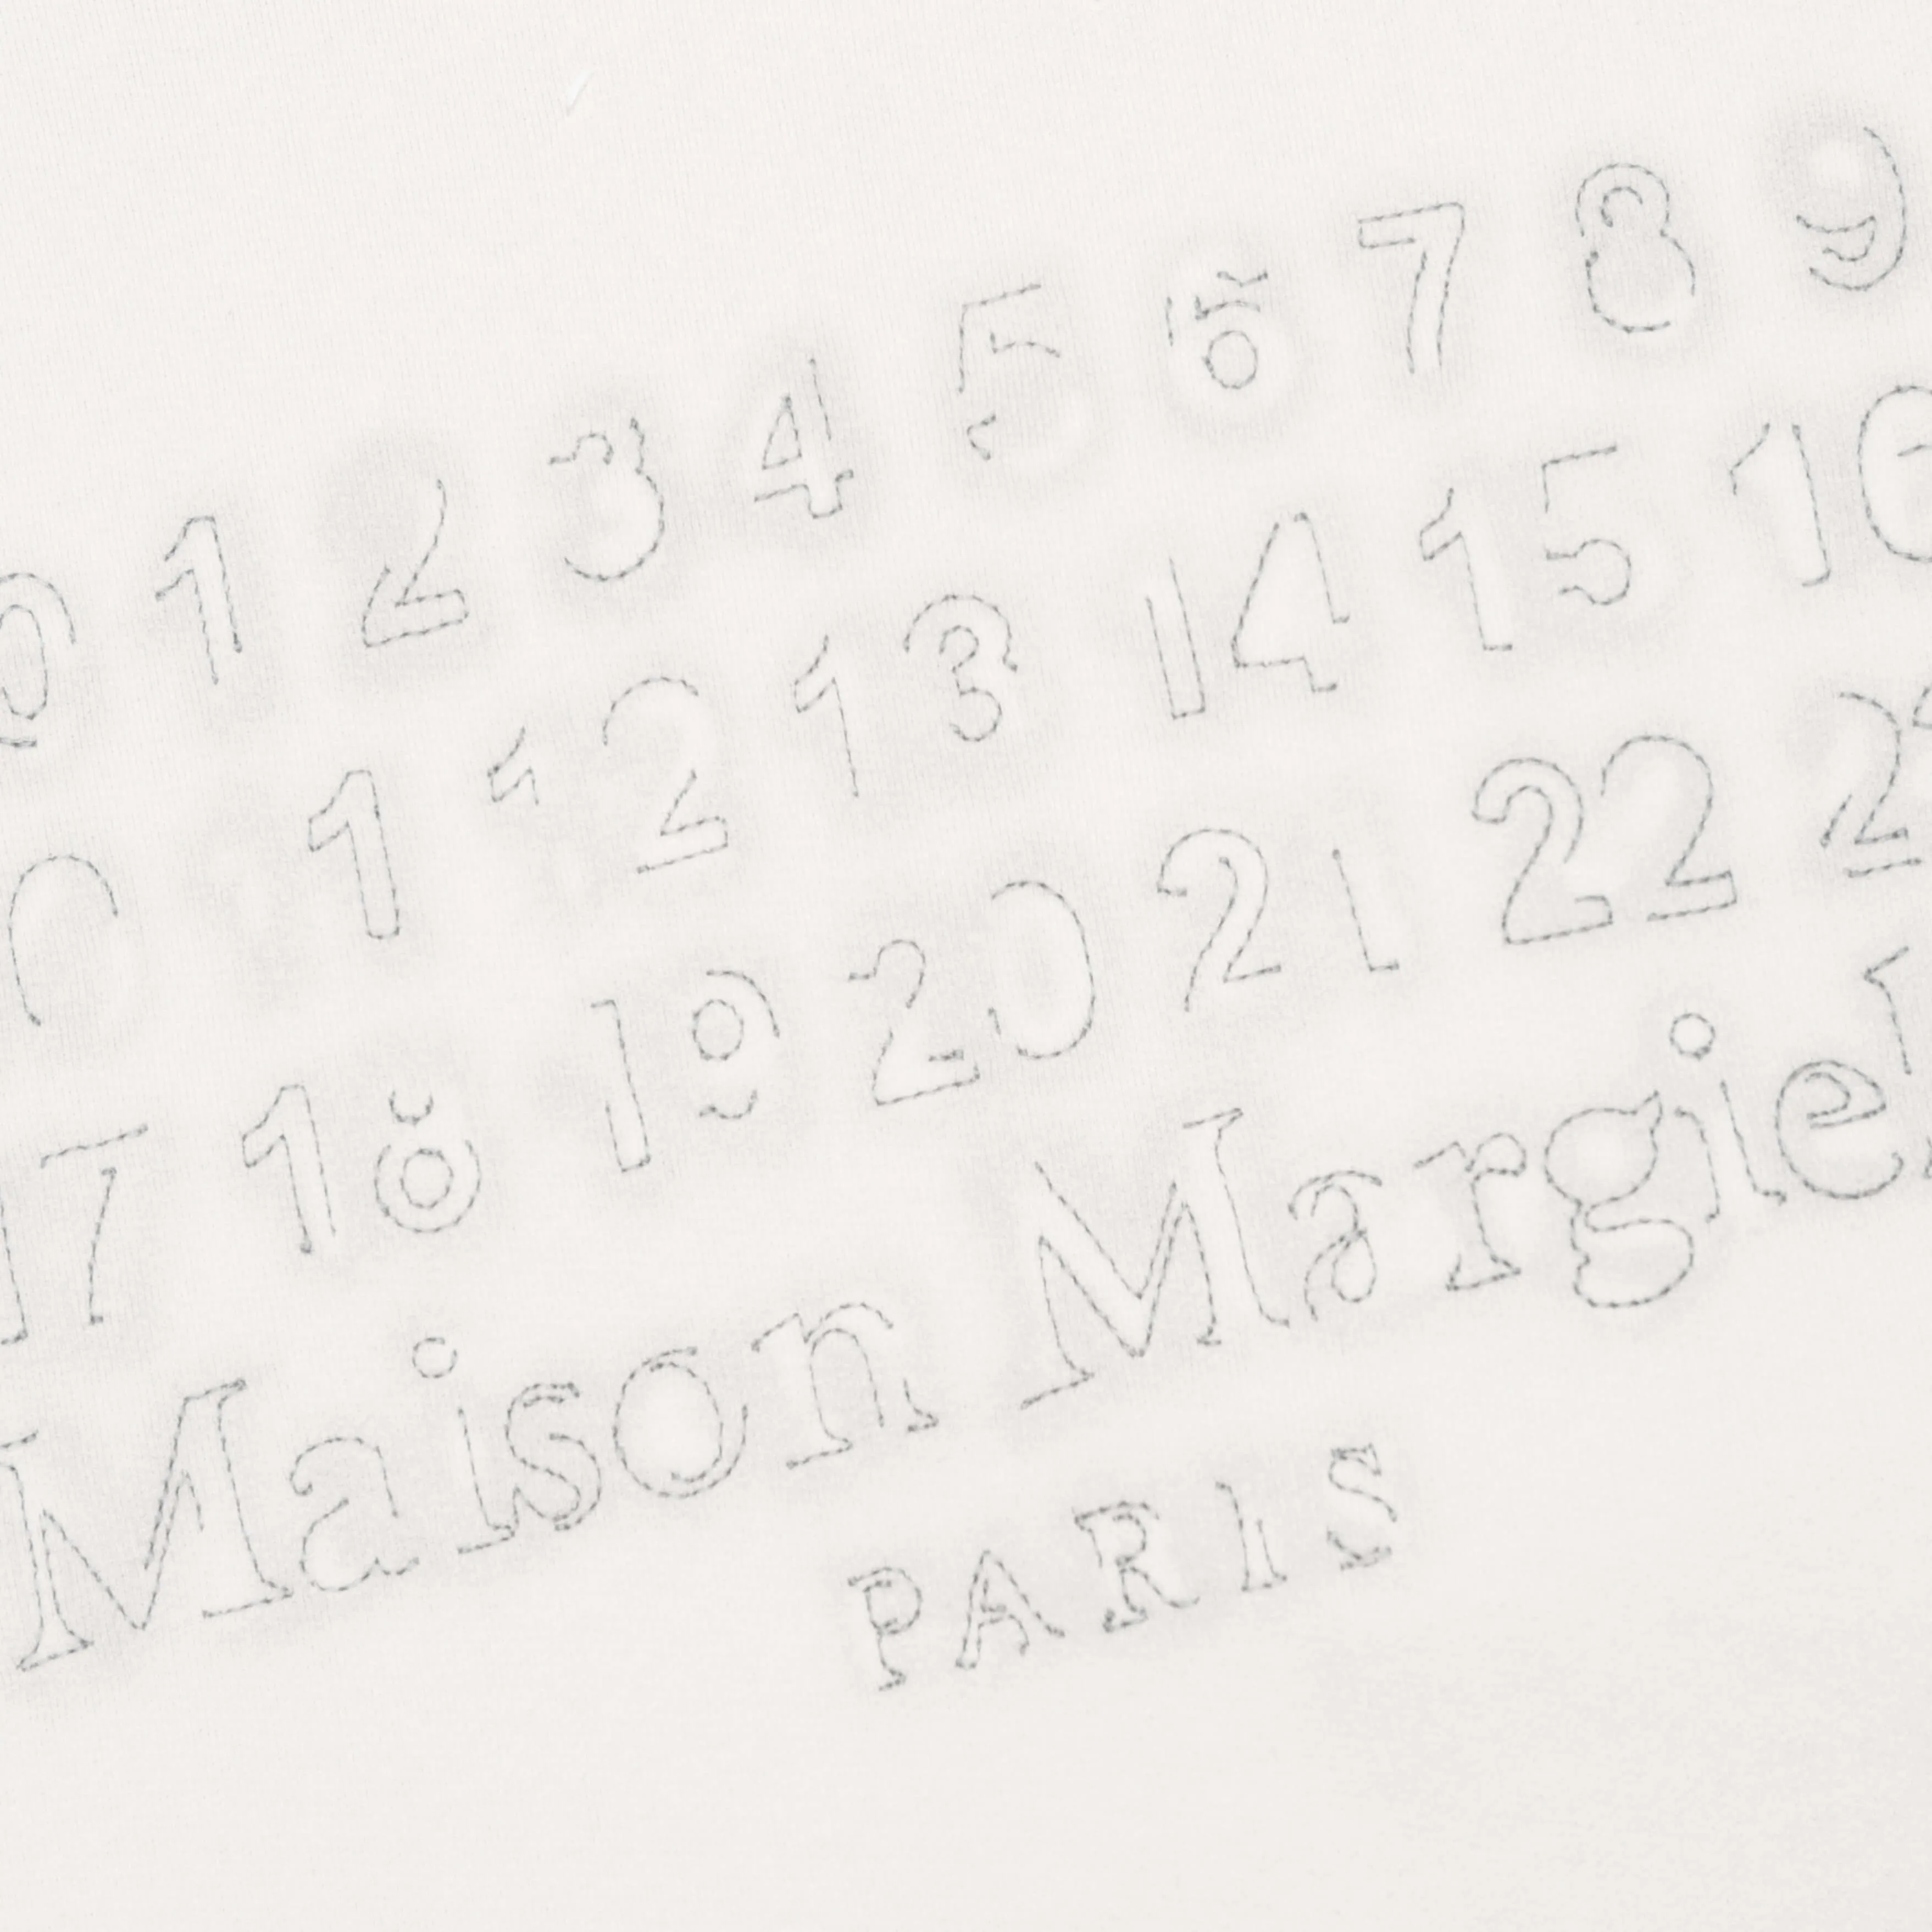 0 1 2 3 4 5 6 7 8 9
10 11 12 13 14 15 16
17 18 19 20 21 22 23
Maison Margiel
PARIS